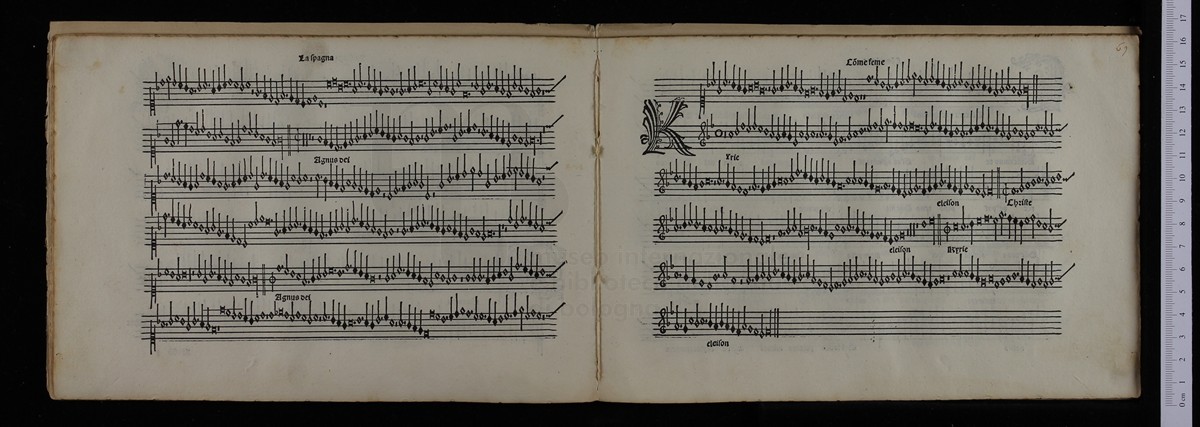 La spagna
Agnus dei
Agnus dei
Cõme feme
K
yrie
eleison
Christe
eleison
Kyrie
eleison
museo internazionale
biblioteca
bologna
0 cm 1 2 3 4 5 6 7 8 9 10 11 12 13 14 15 16 17